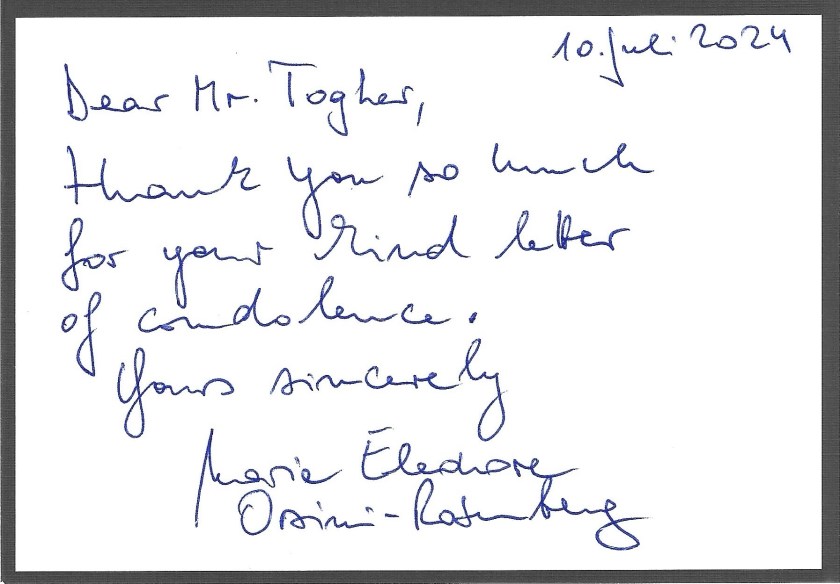 10. Juli 2024
Dear Mr. Togher,
thank you so much
for your kind letter
of condolence.
Yours sincerely
Marie Eleonore
Orsini-Rosenberg